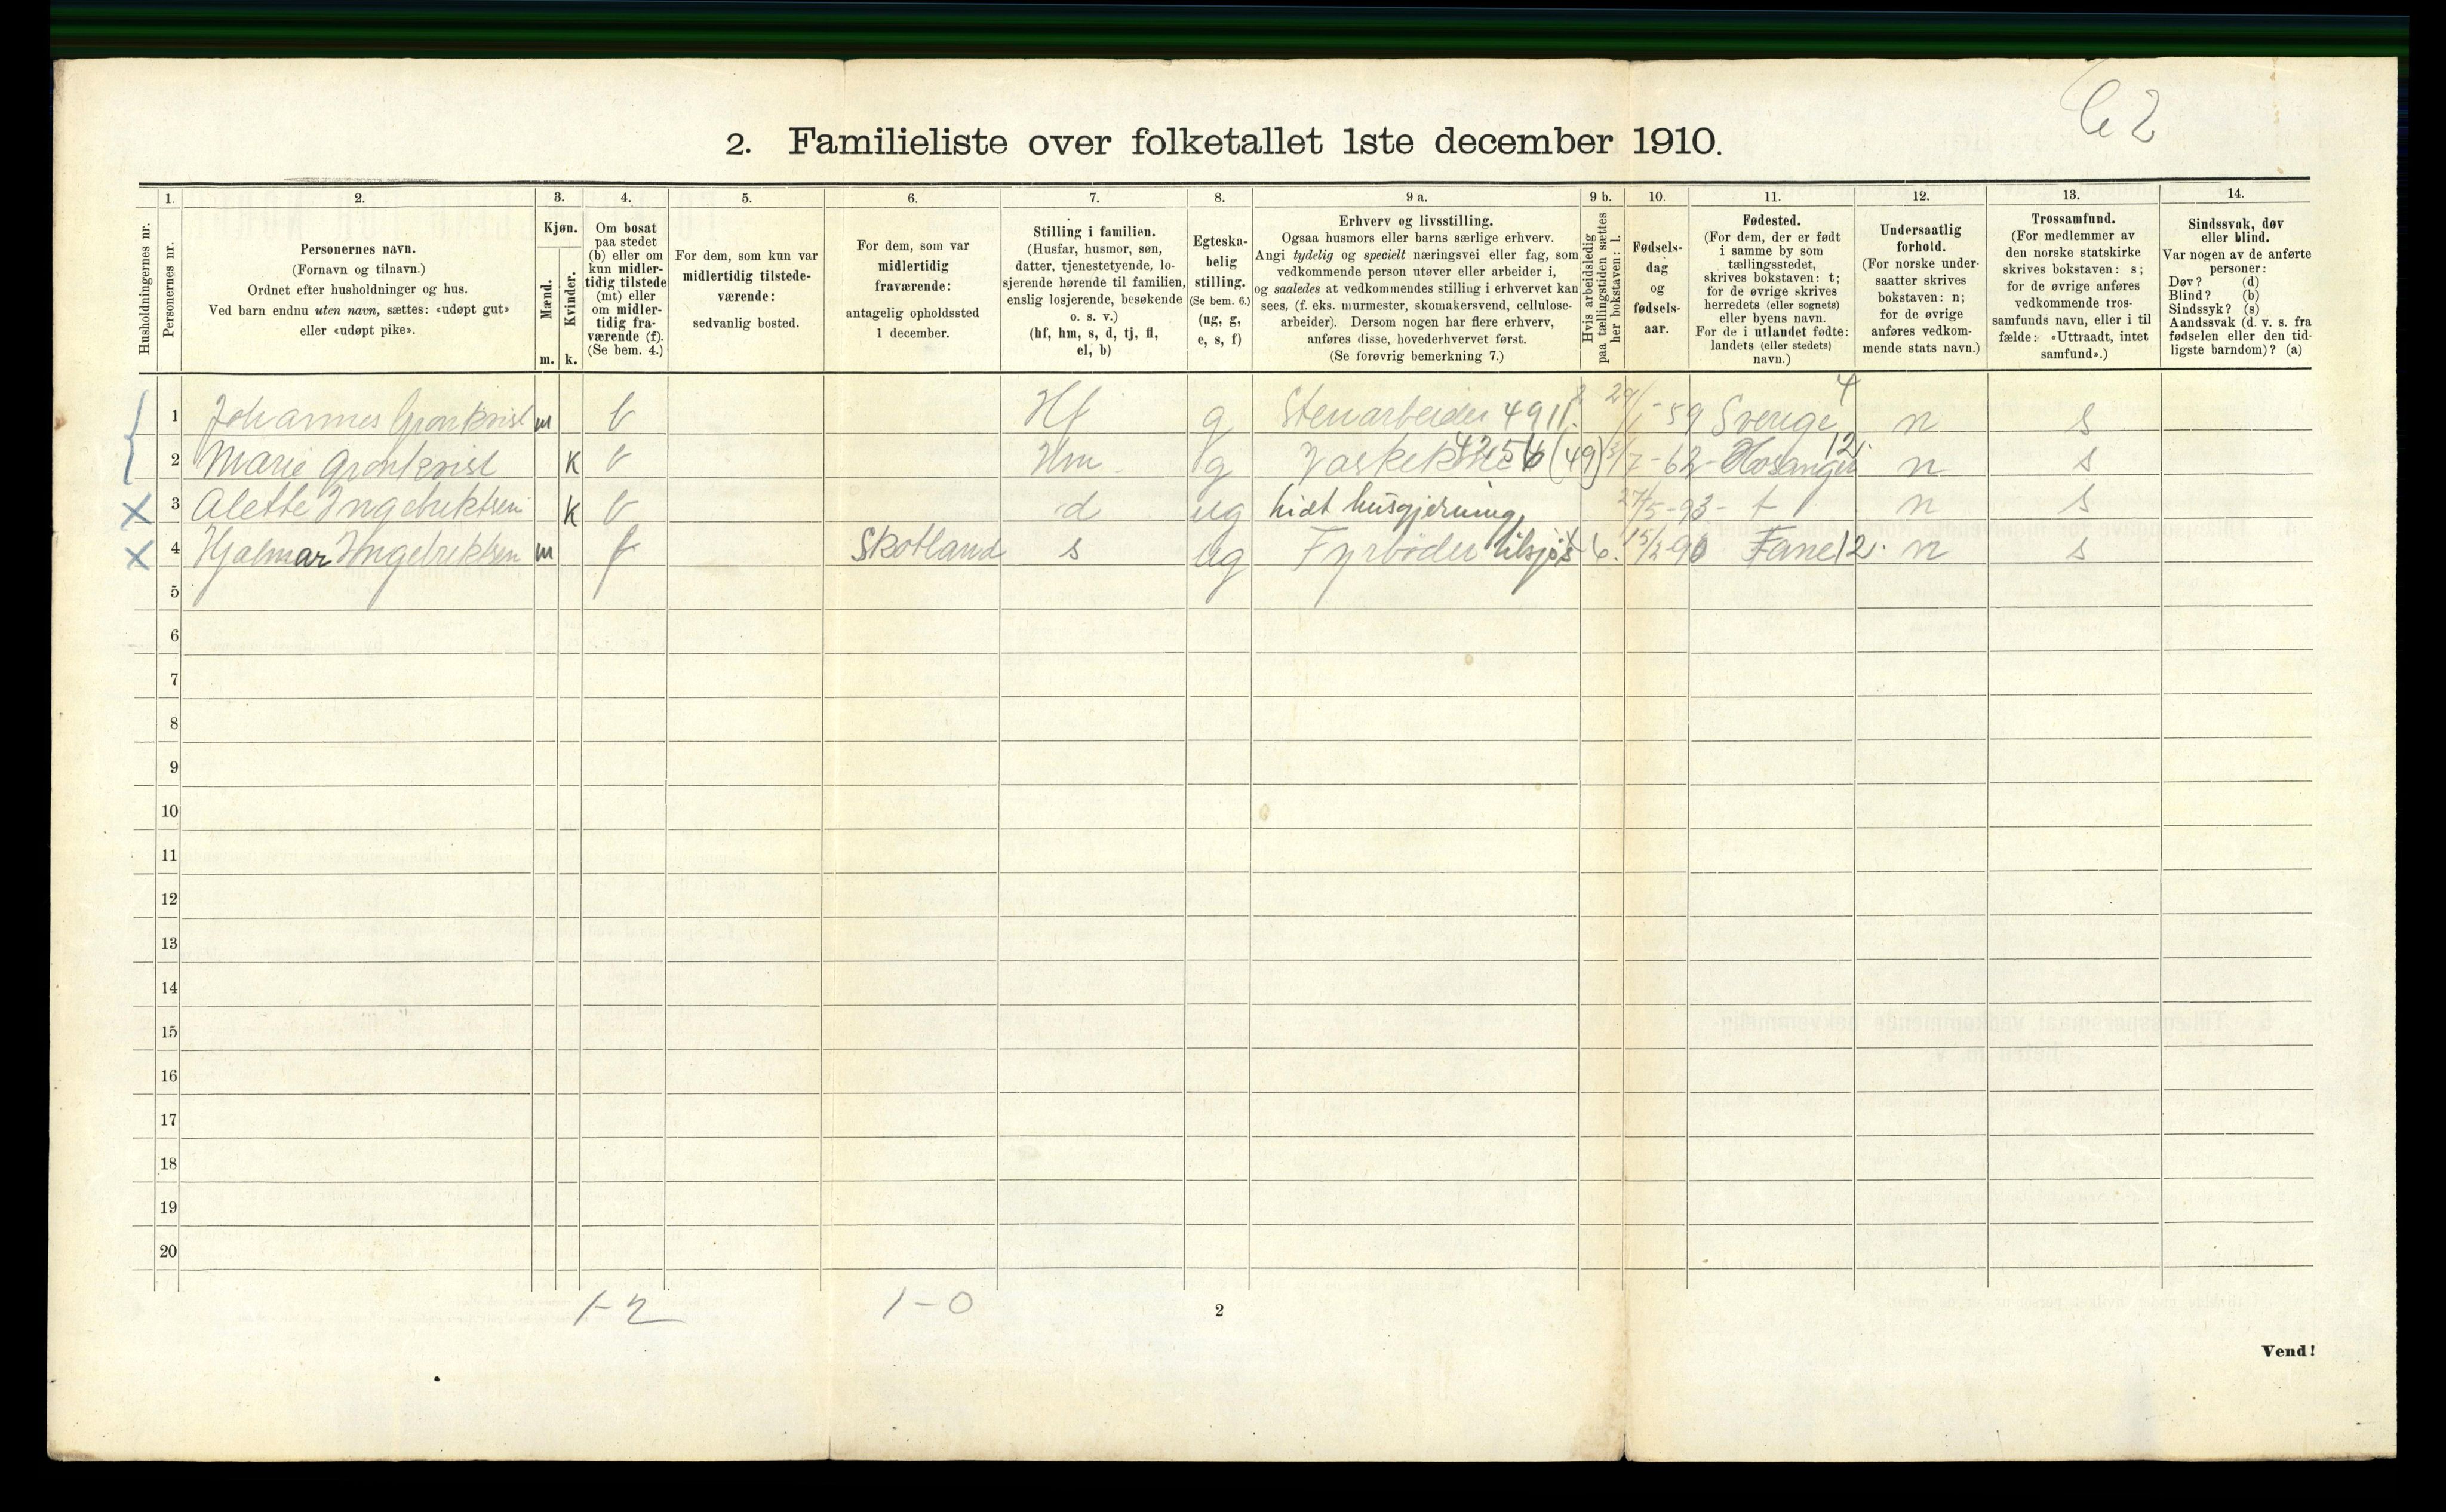 62
2. Familieliste over folketallet 1ste december 1910.
Husholdningernes nr.
1.
Personernes nr.
2.
Personernes navn.
(Fornavn og tilnavn.)
Ordnet efter husholdninger og hus.
Ved barn endnu uten navn, sættes: «udøpt gut»
eller «udøpt pike».
3.
Kjøn.
Mænd.
Kvinder.
m. k.
4.
Om bosat
paa stedet
(b) eller om
kun midler-
tidig tilstede
(mt) eller
om midler-
tidig fra-
værende (f).
(Se bem. 4.)
5.
For dem, som kun var
midlertidig tilstede-
værende:
sedvanlig bosted.
6.
For dem, som var
midlertidig
fraværende:
antagelig opholdssted
1 december.
7.
Stilling i familien.
(Husfar, husmor, søn,
datter, tjenestetyende, lo-
sjerende hørende til familien,
enslig losjerende, besøkende
o. s. v.)
(hf, hm, s, d, tj, fl,
el, b)
8.
Egteska-
belig
stilling.
(Se bem. 6.)
(ug, g,
e, s, f)
9 a.
Erhverv og livsstilling.
Ogsaa husmors eller barns særlige erhverv.
Angi tydelig og specielt næringsvei eller fag, som
vedkommende person utøver eller arbeider i,
og saaledes at vedkommendes stilling i erhvervet kan
sees, (f. eks. murmester, skomakersvend, cellulose-
arbeider). Dersom nogen har flere erhverv,
anføres disse, hovederhvervet først.
(Se forøvrig bemerkning 7.)
9 b.
Hvis arbeidsledig
paa tællingstiden sættes
her bokstaven: l.
10.
Fødsels-
dag
og
fødsels-
aar.
11.
Fødested.
(For dem, der er født
i samme by som
tællingsstedet,
skrives bokstaven: t;
for de øvrige skrives
herredets (eller sognets)
eller byens navn.
For de i utlandet fødte:
landets (eller stedets)
navn.)
12.
Undersaatlig
forhold.
(For norske under-
saatter skrives
bokstaven: n;
for de øvrige
anføres vedkom-
mende stats navn.)
13.
Trossamfund.
(For medlemmer av
den norske statskirke
skrives bokstaven: s;
for de øvrige anføres
vedkommende tros-
samfunds navn, eller i til
fælde: «Uttraadt, intet
samfund».)
14.
Sindssvak, døv
eller blind.
Var nogen av de anførte
personer:
Døv? (d)
Blind? (b)
Sindssyk? (s)
Aandssvak (d. v. s. fra
fødselen eller den tid-
ligste barndom)? (a)
1 Johannes Gronkvist m b Hf g Stenarbeider 4911. 29/1-59 Sverige 4 n s
2 Marie Gronkvist k b Hm g Vaskekone (49) /7-62 Hosanger 12. n s
3 Alette Ingebriktsen k b d ug hidt husgjerning 27/5-93- t n s
4 Hjalmar Ingebriktsen m f Skotland s ug Fyrbøder tilsjøs 6. 15/2-90 Fane 12. n s
5
6
7
8
9
10
11
12
13
14
15
16
17
18
19
20
1-2 1-0
2
Vend!